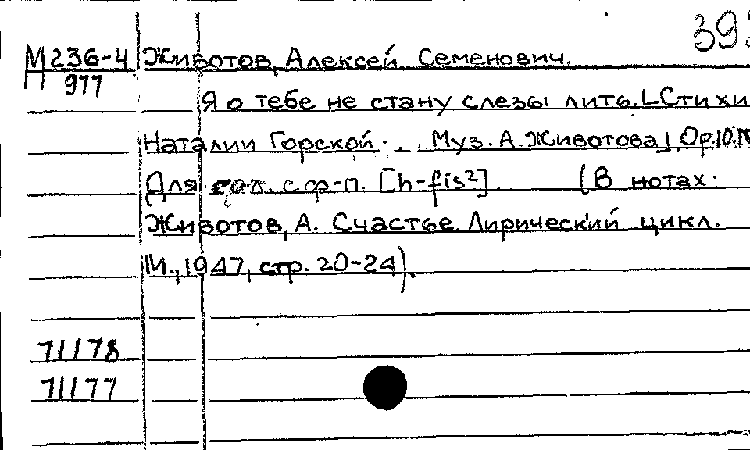 393
М236-4 Животов, Алексей Семенович.
977
Я о тебе не стану слезы лить. [Стихи
Наталии Горской. . . Муз. А. Животова], Ор.10.№
Для гол. с ф-п. [h-fis²] (В нотах:
Животов, А. Счастье. Лирический цикл.
М., 1947, стр. 20-24).
71178
71177